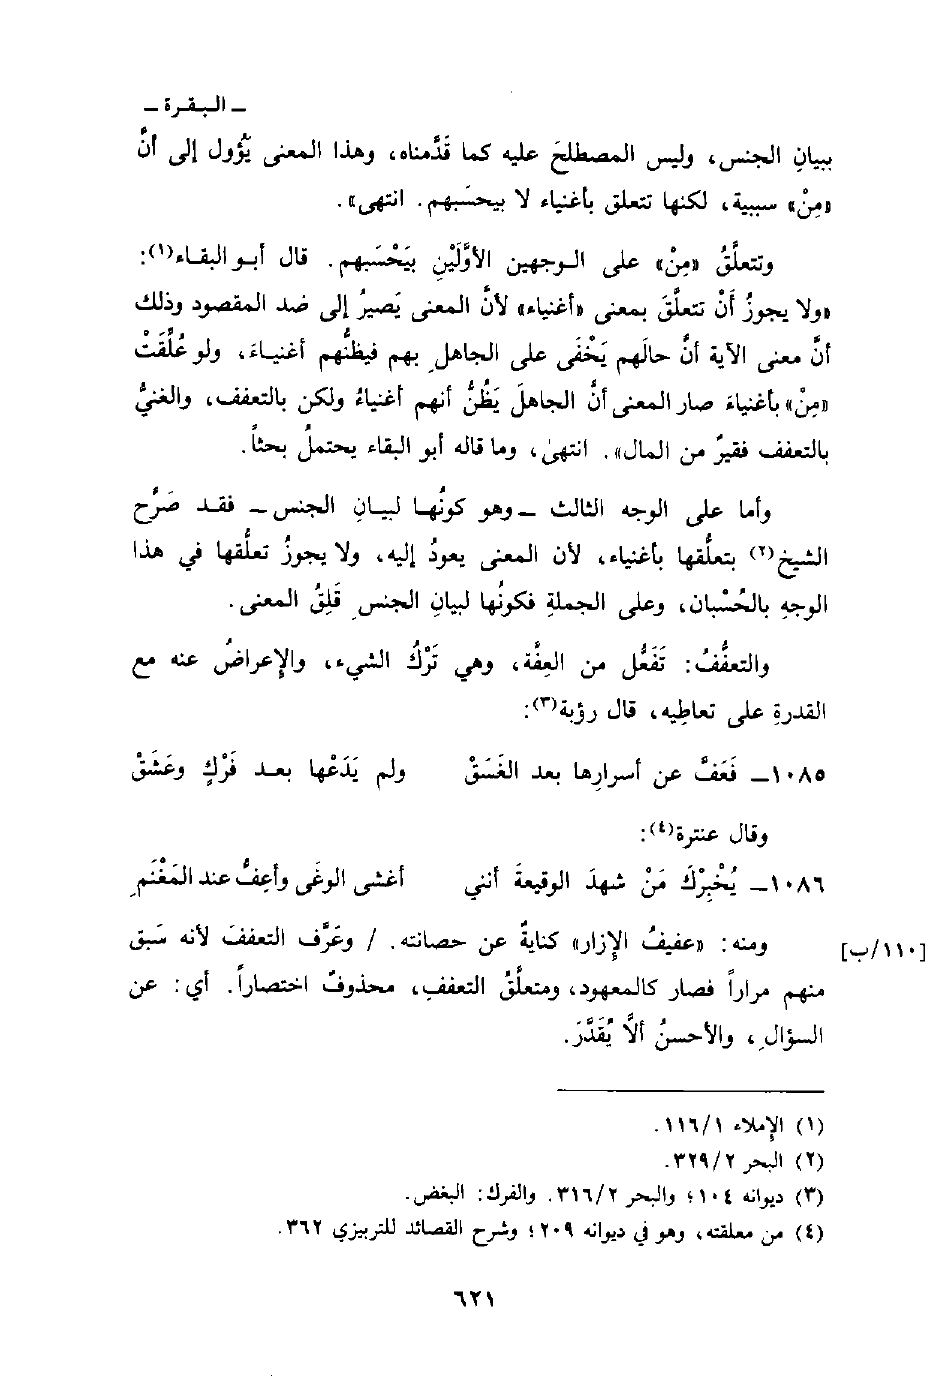 ـ البقرة ـ
ببيانِ الجنس، وليس المصطلحَ عليه كما قَدَّمناه، وهذا المعنى يَؤُول إلى أنَّ
«مِنْ» سببية، لكنها تتعلق بأغنياء لا بيحسَبهم. انتهى».
وتتعلَّقُ «مِنْ» على الوجهين الأوَّلَيْنِ بيَحْسَبهم. قال أبو البقاء(١):
«ولا يجوزُ أَنْ تتعلَّقَ بمعنى «أغنياء» لأنَّ المعنى يَصيرُ إلى ضد المقصود وذلك
أنَّ معنى الآية أنَّ حالَهم يَخْفَى على الجاهلِ بهم فيظنُّهم أغنياءَ، ولو عُلِّقَتْ
«مِنْ» بأغنياءَ صار المعنى أنَّ الجاهلَ يَظُنُّ أنهم أغنياءُ ولكن بالتعفف، والغنيُّ
بالتعفف فقيرٌ من المال». انتهىٰ، وما قاله أبو البقاء يحتملُ بحثاً.
وأما على الوجه الثالث ـ وهو كونُها لبيانِ الجنس ـ فقد صَرَّح
الشيخ(٢) بتعلُّقها بأغنياء، لأن المعنى يعودُ إليه، ولا يجوزُ تعلُّقها في هذا
الوجهِ بالحُسْبان، وعلى الجملةِ فكونُها لبيانِ الجنسِ قَلِقُ المعنى.
والتعفُّفُ: تَفَعُّل من العِفَّة، وهي تَرْكُ الشيء، والإعراضُ عنه مع
القدرةِ على تعاطِيه، قال رؤبة(٣):
١٠٨٥ـ فَعَفَّ عن أسرارِها بعد الغَسَقْ ولم يَدَعْها بعد فَرْكٍ وعَشَقْ
وقال عنترة(٤):
١٠٨٦ـ يُخْبِرْكَ مَنْ شهدَ الوقيعةَ أنني أغشى الوغَى وأعِفُّ عند المَغْنَمِ
ومنه: «عفيفُ الإِزار» كنايةٌ عن حصانته. / وعَرَّف التعففَ لأنه سَبق [١١٠/ب]
منهم مراراً فصار كالمعهود، ومتعلَّقُ التعفف، محذوفٌ اختصاراً. أي: عن
السؤالِ، والأحسنُ ألاَّ يُقَدَّرَ.
(١) الإملاء ١/١١٦.
(٢) البحر ٢/٣٢٩.
(٣) ديوانه ١٠٤؛ والبحر ٢/٣١٦. والفرك: البغض.
(٤) من معلقته، وهو في ديوانه ٢٠٩؛ وشرح القصائد للتبريزي ٣٦٢.
٦٢١